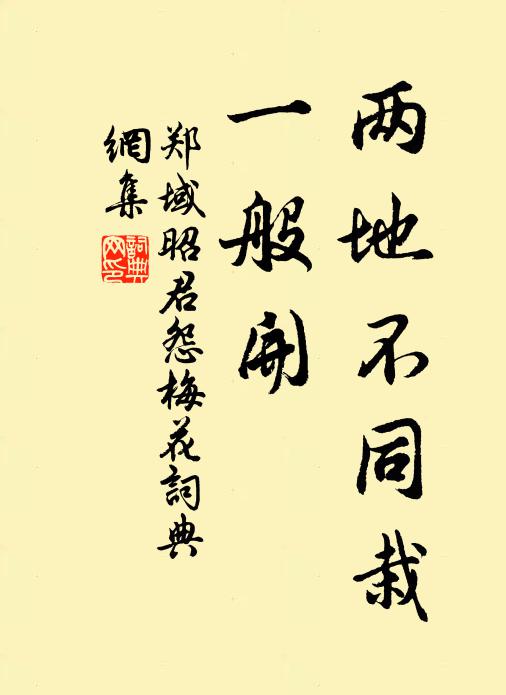 两地不同栽
一般开
郑域昭君怨梅花词典
網集
詞典
网印